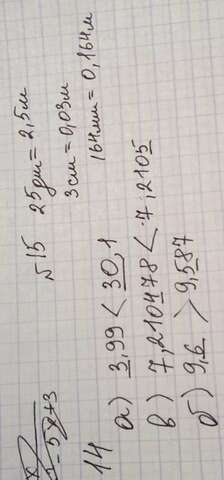 -5x+3
14
а) 3,99 < 30,1
в) 7,210478 < 7,2105
б) 9,6 > 9,587
№15 25дм = 2,5м
3см = 0,03м
164мм = 0,164м